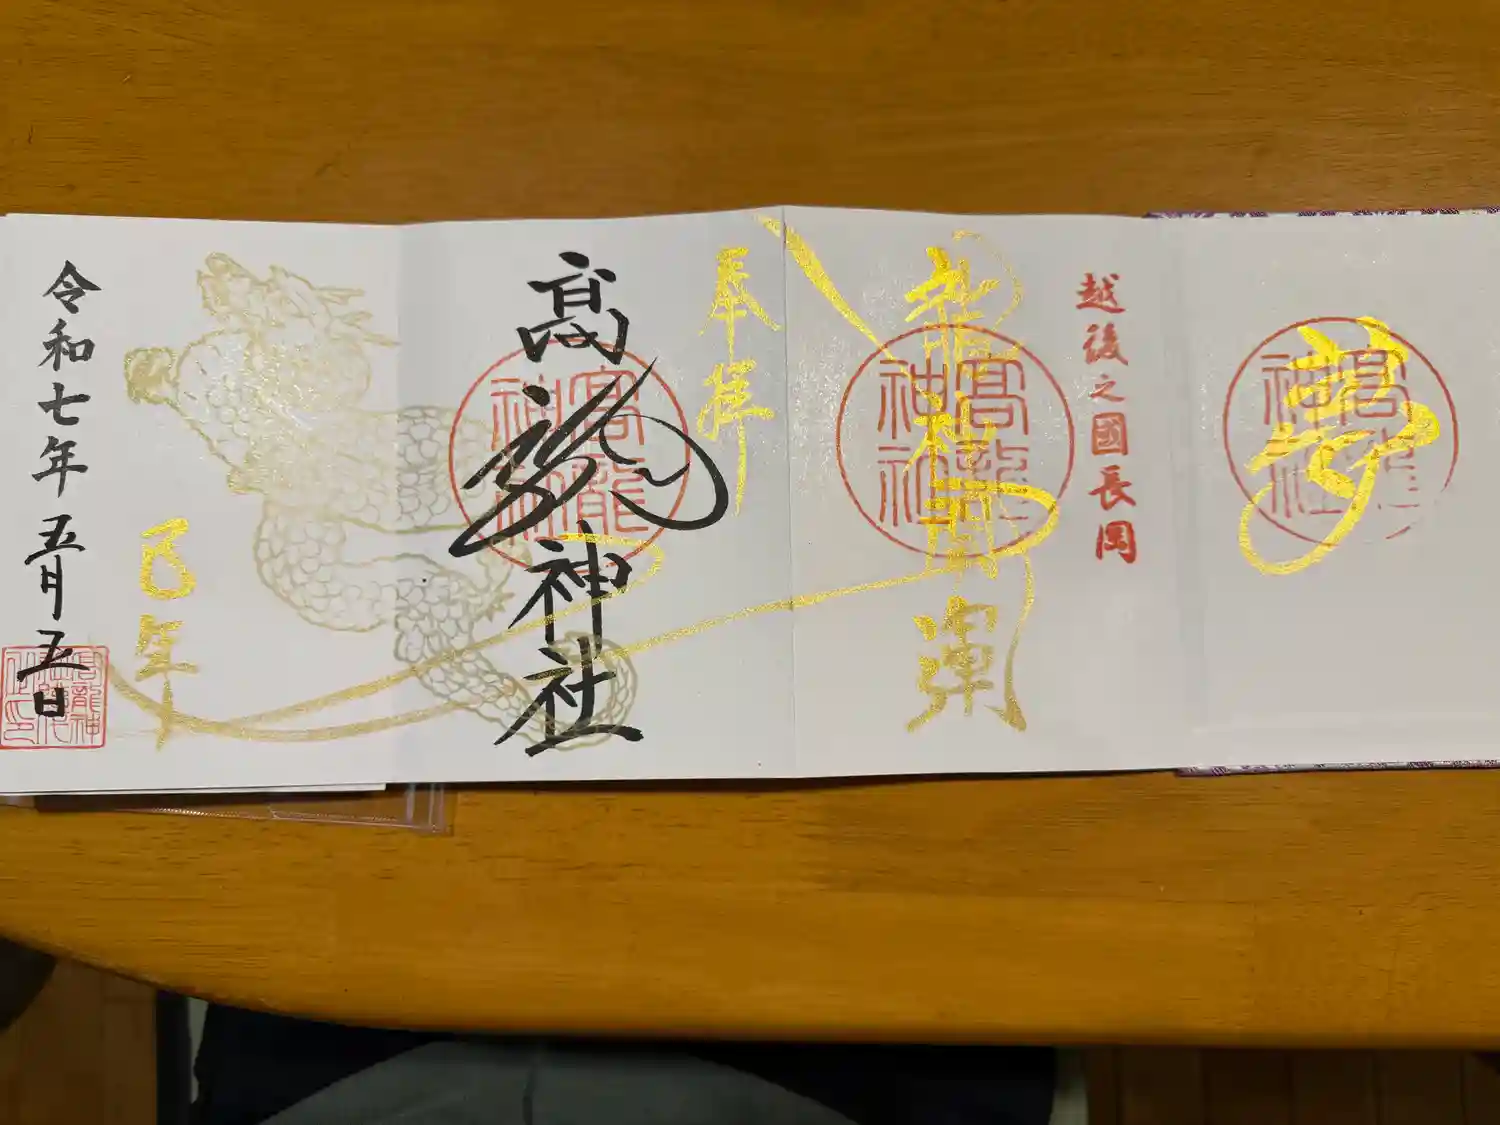 夢
高龍
神社
越後之國長岡
開運
高龍
神社
奉拝
髙龍神社
高龍
神社
巳年
令和七年五月五日